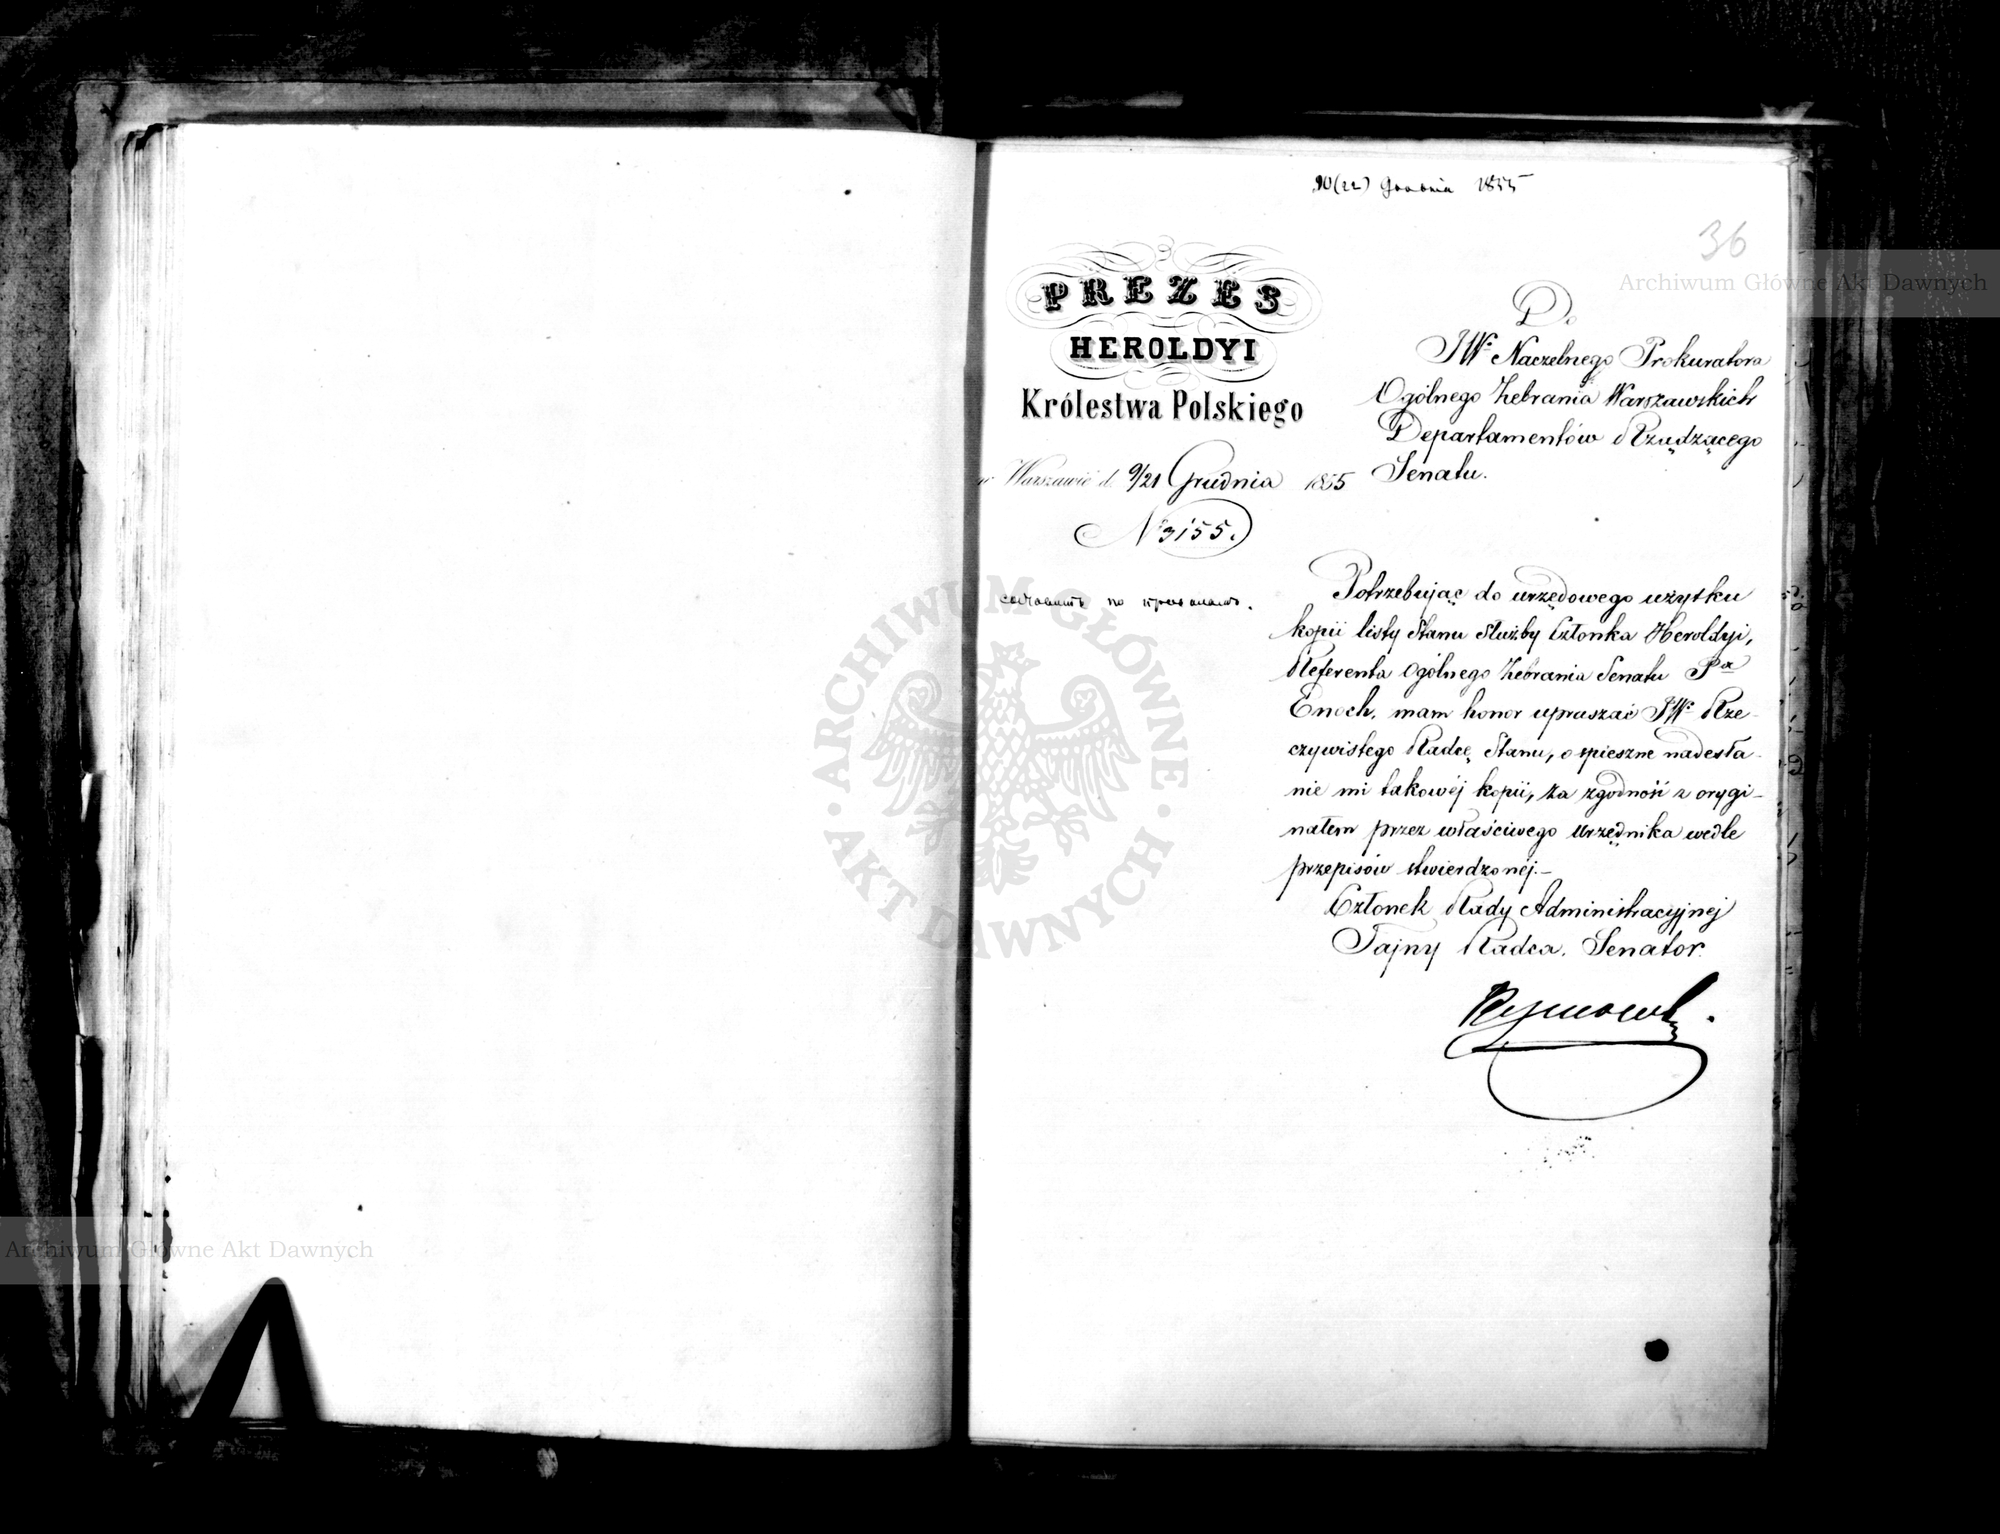 10(22) Grudnia 1855
36
PREZES
HEROLDYI
Królestwa Polskiego
w Warszawie d. 9/21 Grudnia 1855
N 3155.
Do
JW. Naczelnego Prokuratora
Ogólnego Zebrania Warszawskich
Departamentów Rządzącego
Senatu.
Potrzebując do urzędowego użytku
kopii listy Stanu Służby Członka Heroldyi,
Referenta Ogólnego Zebrania Senatu Pa
Enoch, mam honor upraszać JW. Rze-
czywistego Radcę Stanu, o spieszne nadesła-
nie mi takowéj kopii, za zgodność z orygi-
nałem przez właściwego Urzędnika wedle
przepisów stwierdzonéj.-
Członek Rady Administracyjnej
Tajny Radca, Senator.
Archiwum Główne Akt Dawnych
ARCHIWUM GŁÓWNE · AKT DAWNYCH ·
Archiwum Główne Akt Dawnych